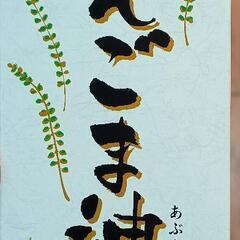 えごま油
あぶ